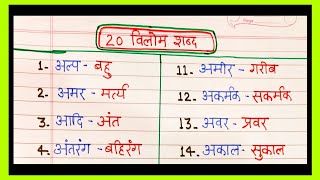 20 विलोम शब्द
1- अल्प - बहु
2- अमर - मर्त्य
3- आदि - अंत
4- अंतरंग - बहिरंग
11- अमीर - गरीब
12- अकर्मक - सकर्मक
13- अवर - प्रवर
14- अकाल - सुकाल